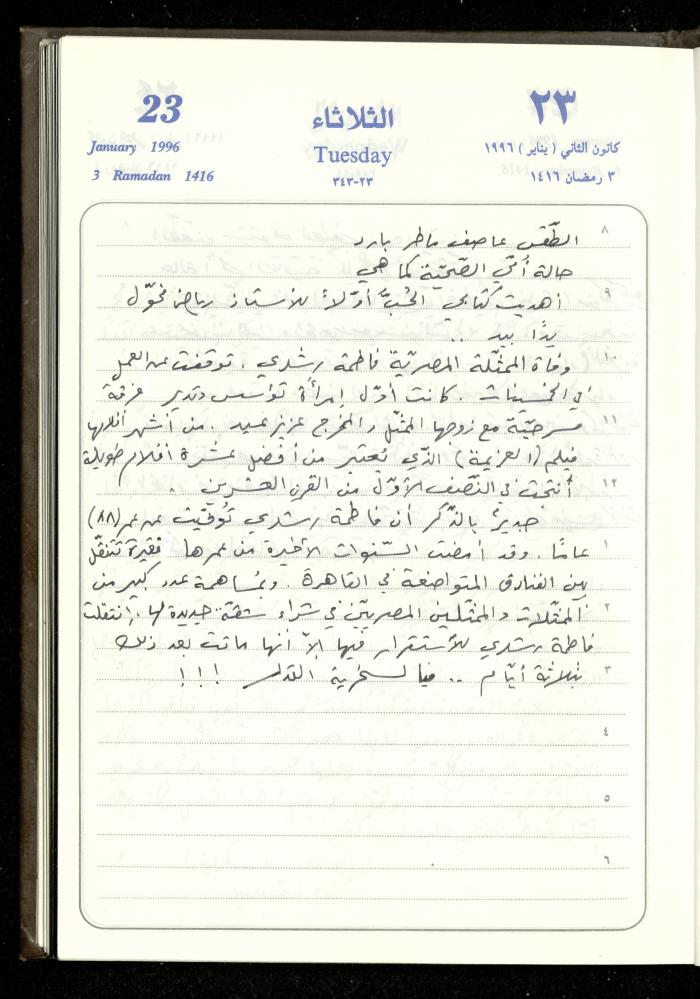 23
الثلاثاء
٢٣
January 1996
Tuesday
كانون الثاني ( يناير ) ١٩٩٦
3 Ramadan 1416
٢٣-٣٤٣
٣ رمضان ١٤١٦
٨
الطّقس عاصف ماطر بارد
حالة أمّي الصّحيّة كما هي
٩
أهديت كتابي الحُبُّ أوّلاً للأستاذ رياض مخوّل
يدًا بيد ..
١٠
وفاة الممثّلة المصريّة فاطمة رشدي . توقفت عن العمل
في الخمسينات . كانت أوّل إمرأة تؤسس وتدير فرقة
١١
مسرحيّة مع زوجها الممثّل والمخرج عزيز عيد . من أشهر أفلامها
فيلم (العزيمة) الذّي يُعتبر من أفضل عشرة أفلام طويلة
١٢
أُنتجت في النّصف الأوّل من القرن العشرين ..
جديرٌ بالذّكر أن فاطمة رشدي تُوفّيت عن عمر (٨٨)
١
عامًا . وقد أمضت السّنوات الأخيرة من عمرها فقيرة تتنقّل
بين الفنادق المتواضعة في القاهرة . وبمُساهمة عدد كبير من
٢
الممثّلات والممثّلين المصريّين في شراء شقّة جديدة لها، إنتقلت
فاطمة رشدي للأستقرار فيها إلاّ أنها ماتت بعد ذلك
٣
بثلاثة أيّام .. فيا لسخرية القدر !!!
٤
٥
٦